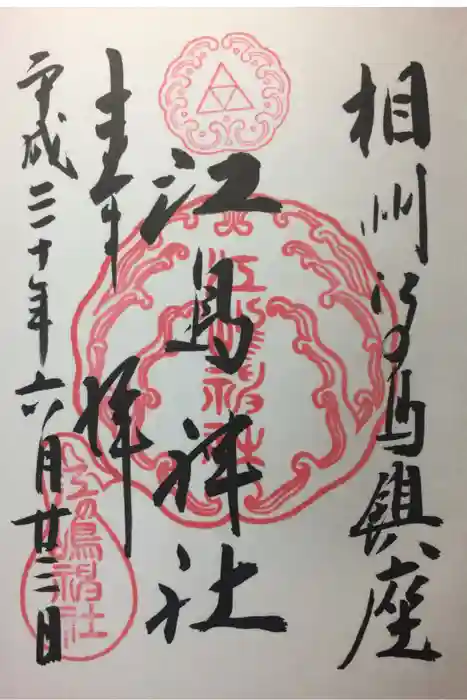 相州江の島鎮座
江島神社
奉拝
平成三十年六月廿三日
江の嶋神社